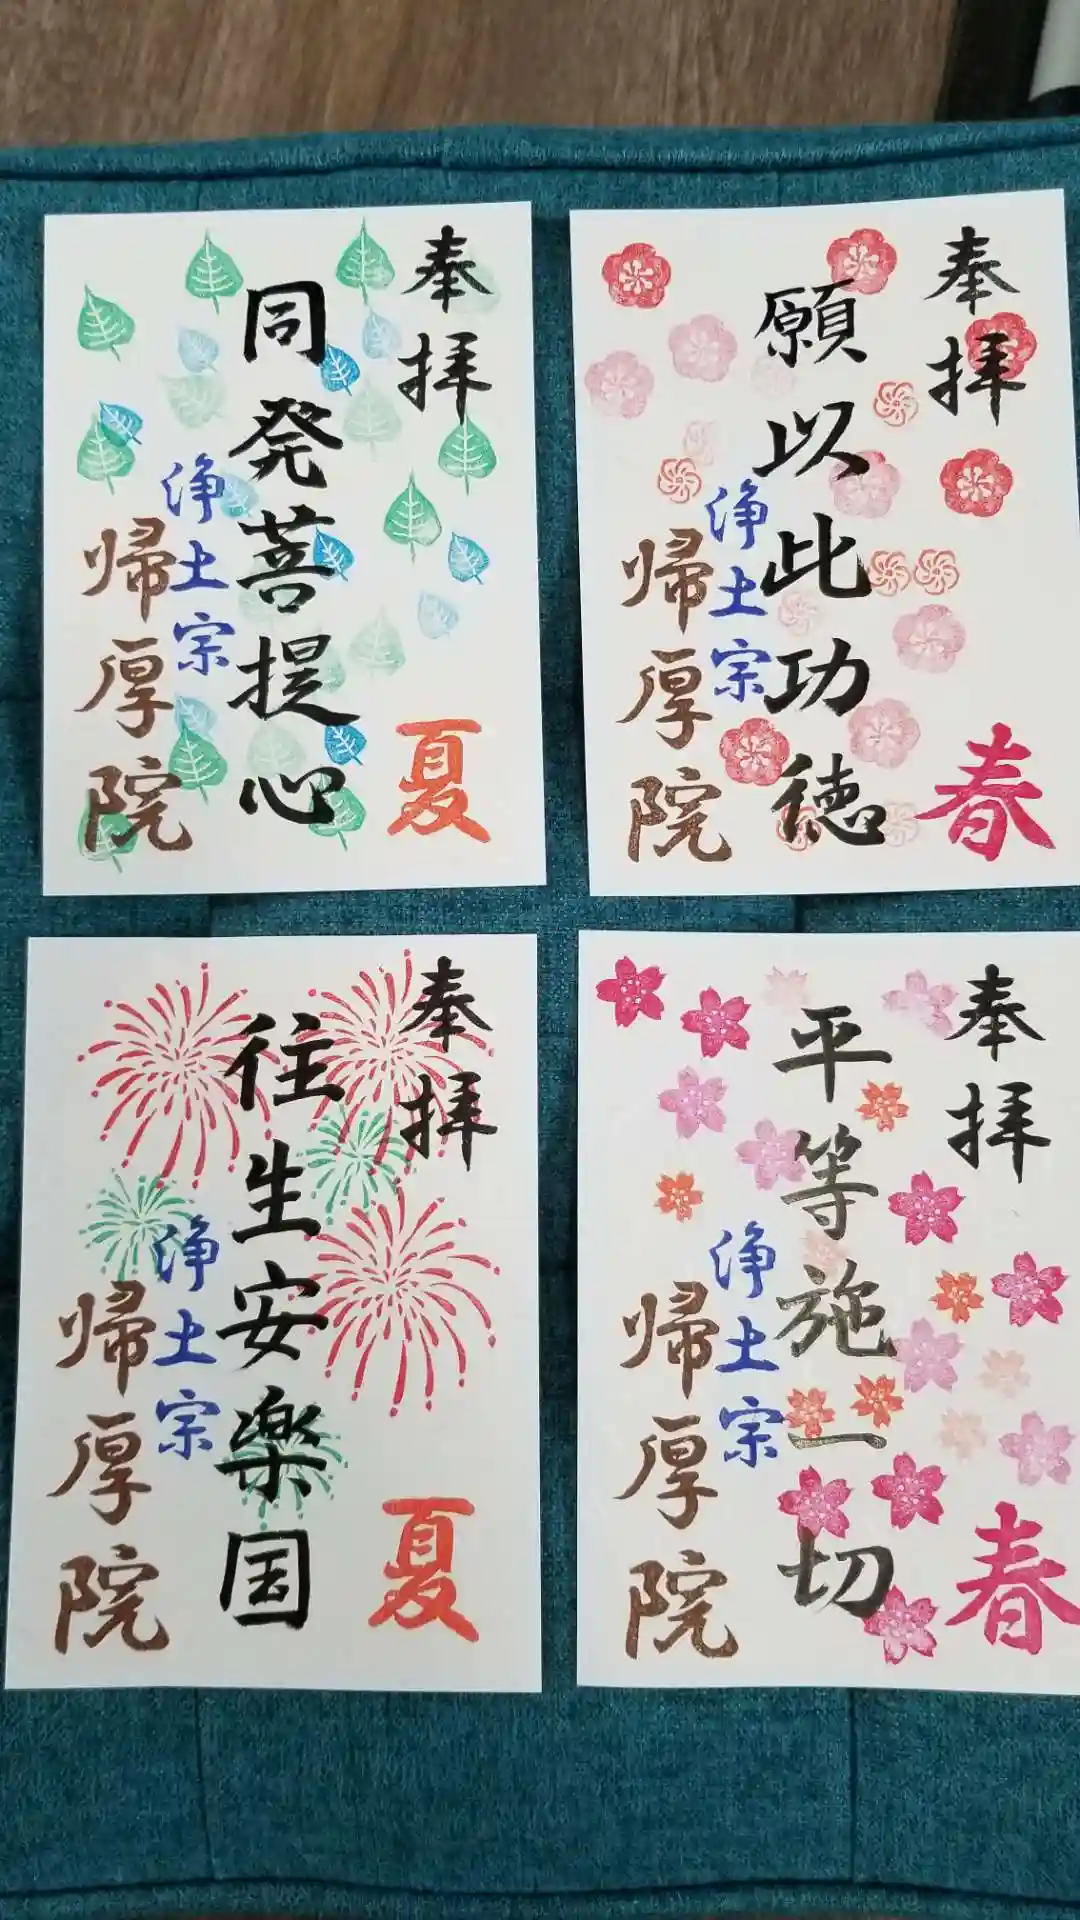 奉拝
願以此功徳
浄土宗
帰厚院
春
奉拝
同発菩提心
浄土宗
帰厚院
夏
奉拝
平等施一切
浄土宗
帰厚院
春
奉拝
往生安楽国
浄土宗
帰厚院
夏